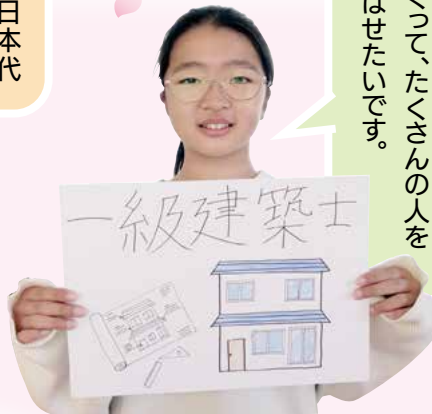 くって、たくさんの人を
はせたいです。
日本代
一級建築士